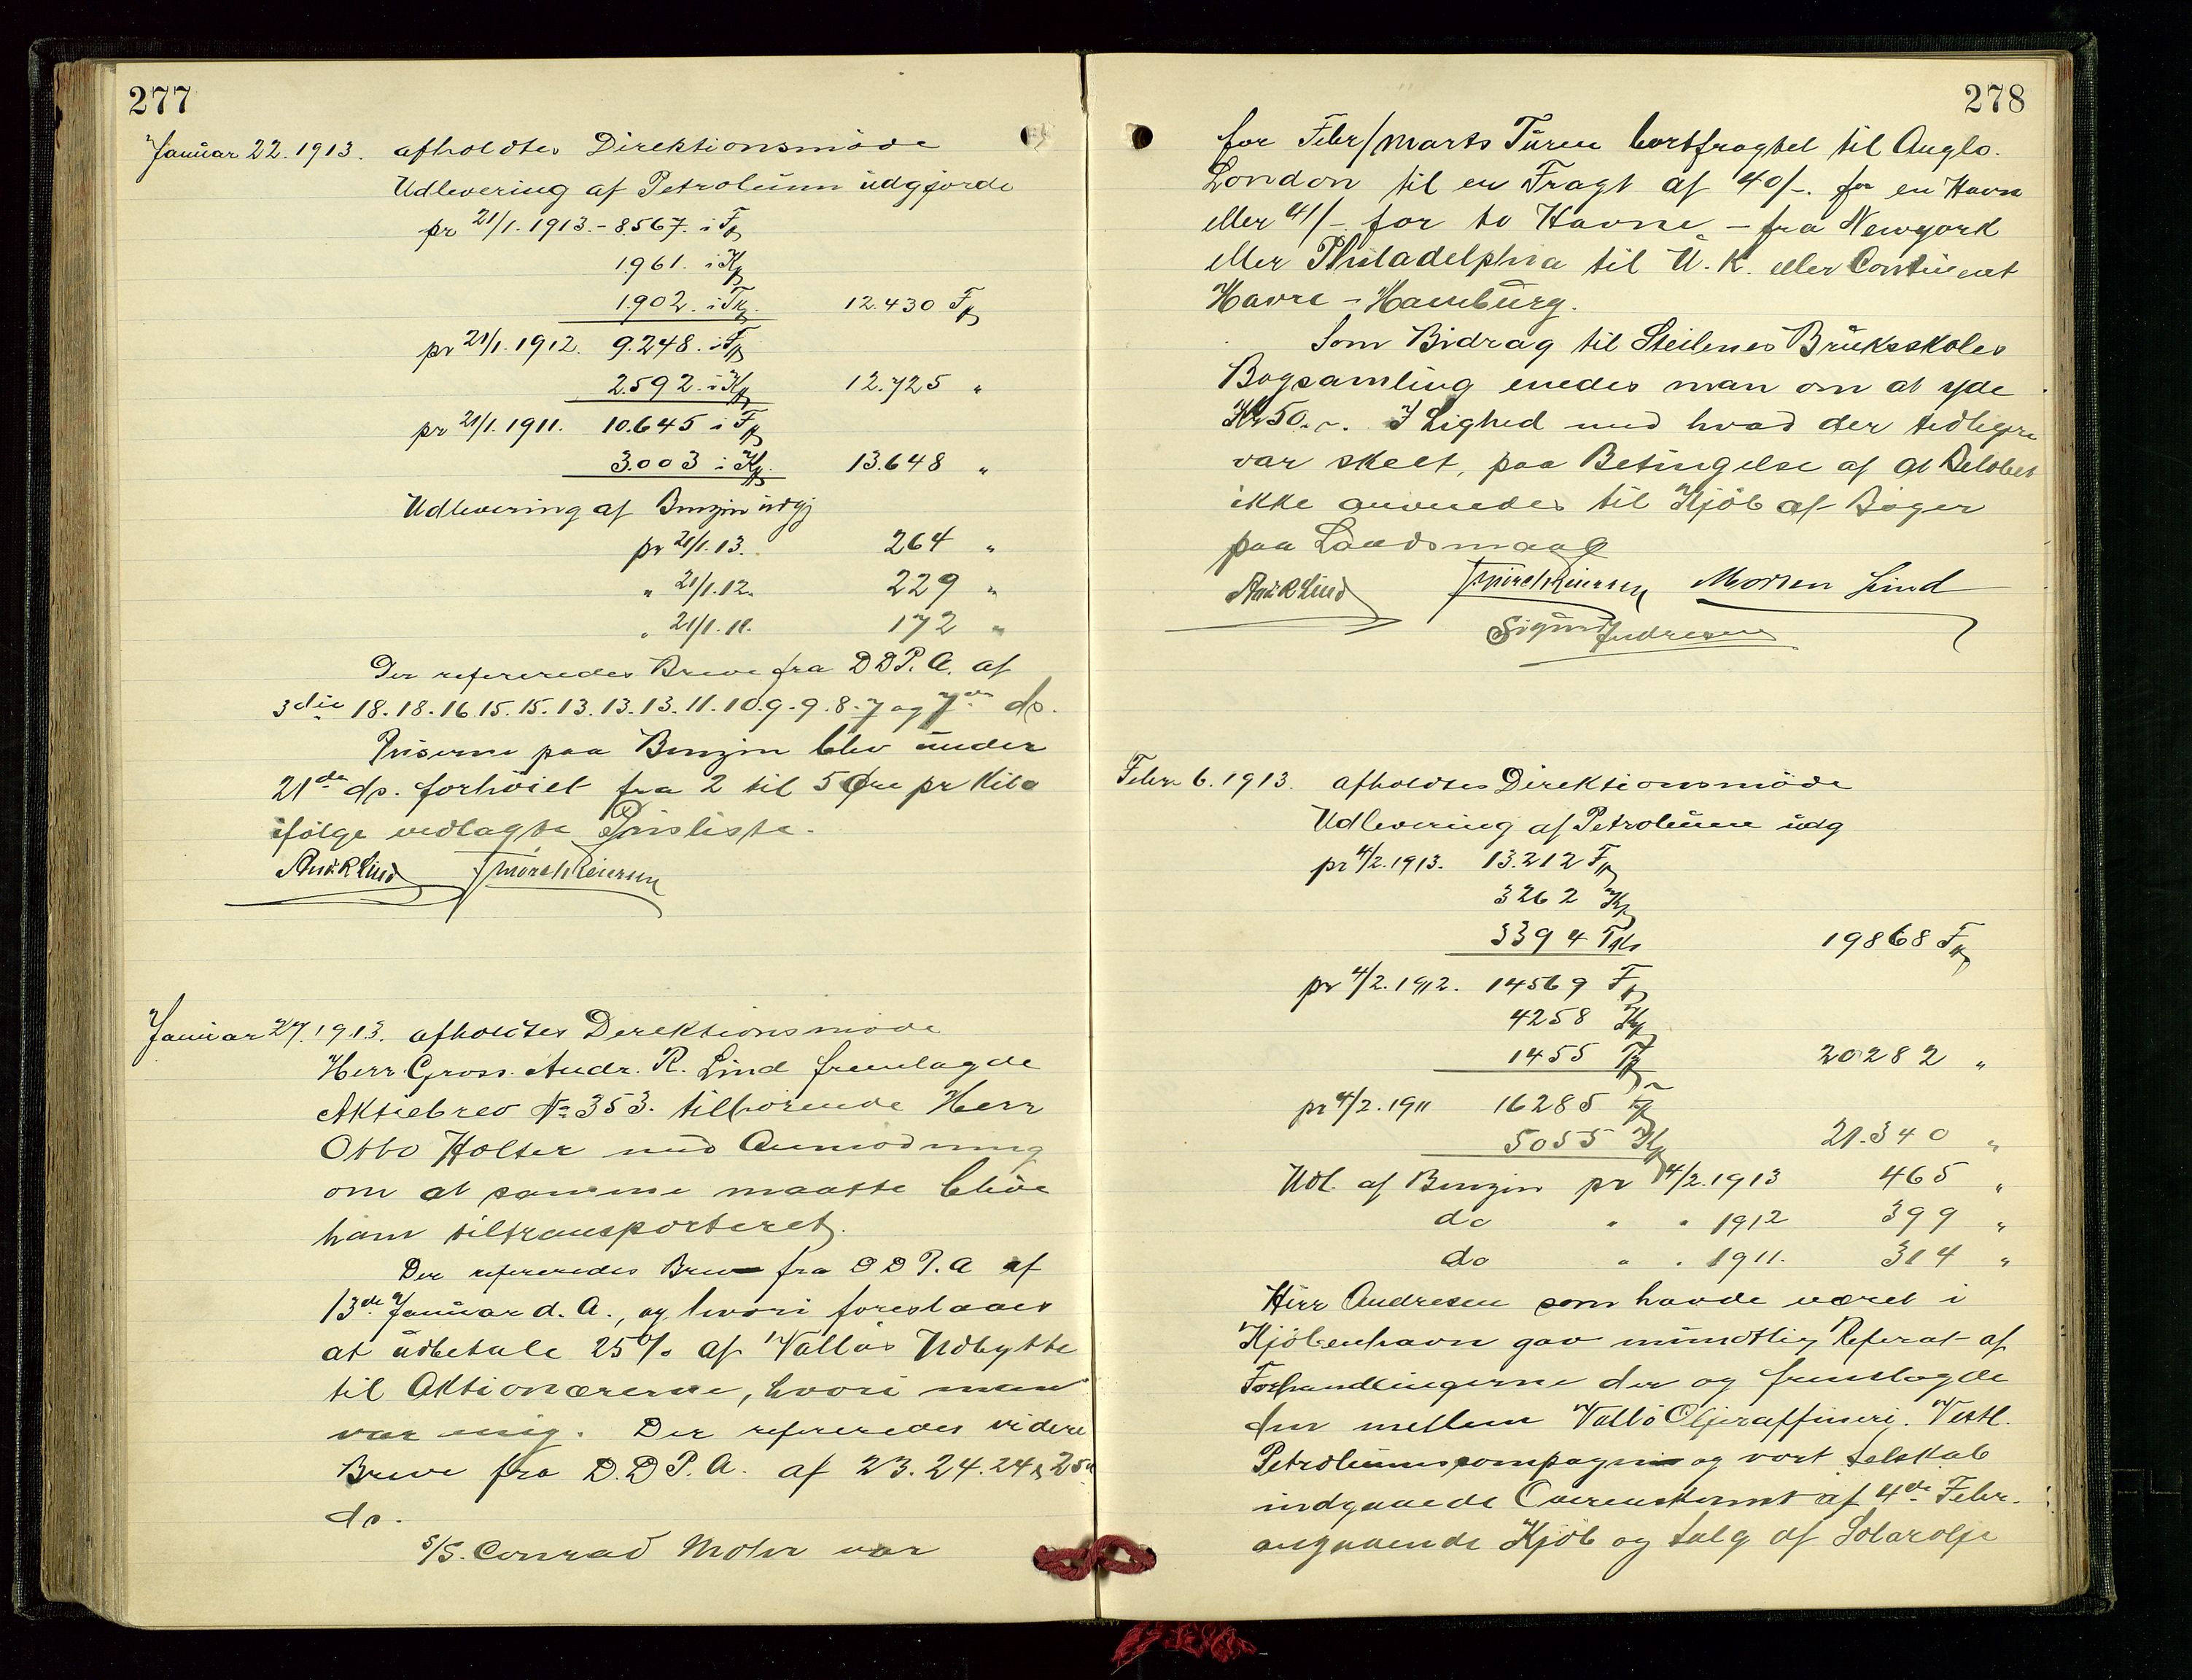 277
Januar 22. 1913. afholdtes Direktionsmöde
Udlevering af Petroleum udgjorde
pr 21/1. 1913. - 8.567. i Fp
1.961. i Kp
1.902. i Tkp. 12.430 Fp
pr 21/1. 1912. 9.248. i Fp
2.592. i Kp 12.725 "
pr 21/1. 1911. 10.645 i Fp
3.003 i Kp. 13.648 "
Udlevering af Benzin udgj
pr 21/1. 13. 264 "
" 21/1. 12. 229 "
" 21/1. 11. 172 "
Der refereredes Breve fra D D P. A. af
3die 18. 18. 16. 15. 15. 13. 13. 13. 11. 10. 9. 9. 8. 7 og 7de ds.
Priserne paa Benzin blev under
21de ds. forhöiet fra 2 til 5 Øre pr Kilo
ifölge vedlagte Prisliste.
Andr R Lind Mörch Reiersen
Januar 27. 1913. afholdtes Direktionsmöde
Herr Gross. Andr. R. Lind fremlagde
Aktiebrev No 353. tilhörende Herr
Otto Holter med Anmodning
om at samme maatte blive
ham tiltransporteret.
Der refereredes Breve fra D D P. A af
13de Januar d. A., og hvori foreslaaes
at udbetale 25% af Vallös Udbytte
til Aktionærerne, hvori man
var enig. Der refereredes videre
Breve fra D. D P. A. af 23. 24. 24 & 25de
ds.
S/S. Conrad Mohr var
278
for Febr/Marts Turen bortfragtet til Anglo.
London til en Fragt af 40/-. for en Havn
eller 41/- for to Havne - fra Newyork
eller Philadelphia til U. K. eller Continent
Havre - Hamburg.
Som Bidrag til Steilenes Bruksskoles
Bogsamling enedes man om at yde
Kr 50. -. I Lighed med hvad der tidligere
var skeet, paa Betingelse af at Belöbet
ikke anvendes til Kjöb af Böger
paa Landsmaal
Andr R Lind Mörch Reiersen Morten Lind
Sigurd Andresen
Febr 6. 1913. afholdtes Direktionsmöde
Udlevering af Petroleum udg
pr 4/2. 1913. 13.212 Fp
3262 Kp
3394 Tks 19868 Fp
pr 4/2. 1912. 14569 Fp
4258 Kp
1455 Tp 20282 "
pr 4/2. 1911 16285 Fp
5055 Kp 21.340 "
Udl. af Benzin pr 4/2. 1913 465 "
do " " 1912 399 "
do " " 1911. 314 "
Herr Andresen som havde været i
Kjöbenhavn gav mundtlig Referat af
Forhandlingerne der og fremlagde
den mellem Vallö Oljeraffineri. Vestl.
Petroleumscompagni og vort Selskab
indgaaede Overenskomst af 4de Febr.
angaaende Kjöb og Salg af Solarolje